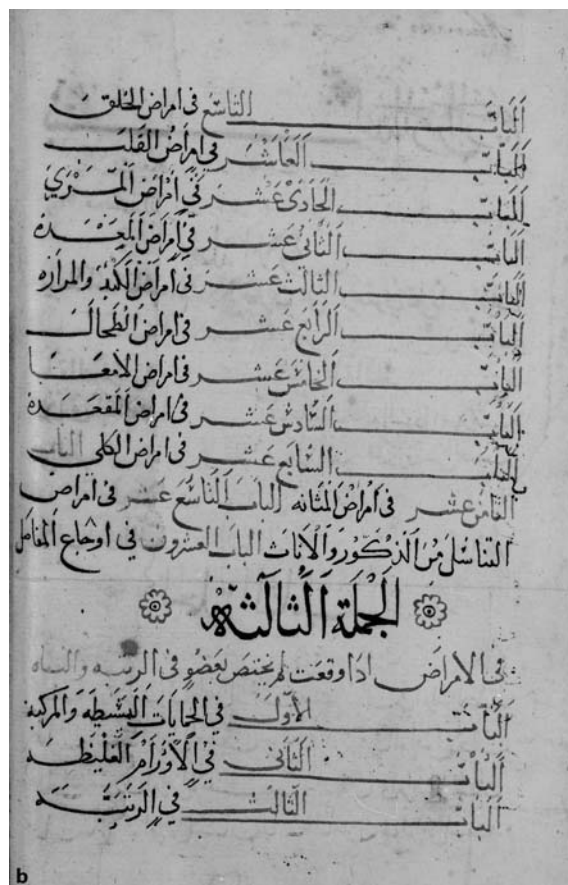 الباب التاسع في امراض الحلق
الباب العاشر في امراض القلب
الباب الحادي عشر في امراض المري
الباب الثاني عشر في امراض المعدة
الباب الثالث عشر في امراض الكبد والمراره
الباب الرابع عشر في امراض الطحال
الباب الخامس عشر في امراض الامعا
الباب السادس عشر في امراض المقعدة
الباب السابع عشر في امراض الكلى الباب
الثامن عشر في امراض المثانه الباب التاسع عشر في امراض
التناسل من الذكور والاناث الباب العشرون في اوجاع المفاصل
الجملة الثالثة
في الامراض اذا وقعت لم يختص بعضو في الزينه
الباب الاول في الحمايات البسيطه والمركبة
الباب الثاني في الاورام الغليظه
الباب الثالث في الزينة
b